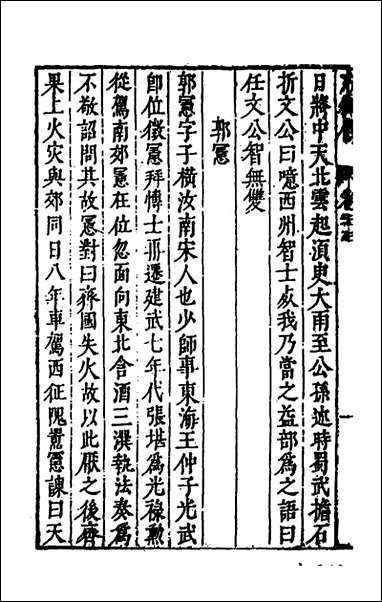 日將中天北雲起湏史大雨至公孫述時蜀武擔石
折文公曰噫西州智士㱕我乃當之益部為之語曰
任文公智無雙
郭憲
郭憲字子橫汝南宋人也少師事東海王仲子光武
即位徵憲拜博士再遷建武七年代張堪爲光祿勲
從駕南郊憲在位忽面向東北含酒三潠執法奏爲
不敬詔問其故憲對曰齊國失火故以此厭之後齊
果上火灾與郊同日八年車駕西征隗囂憲諫曰天